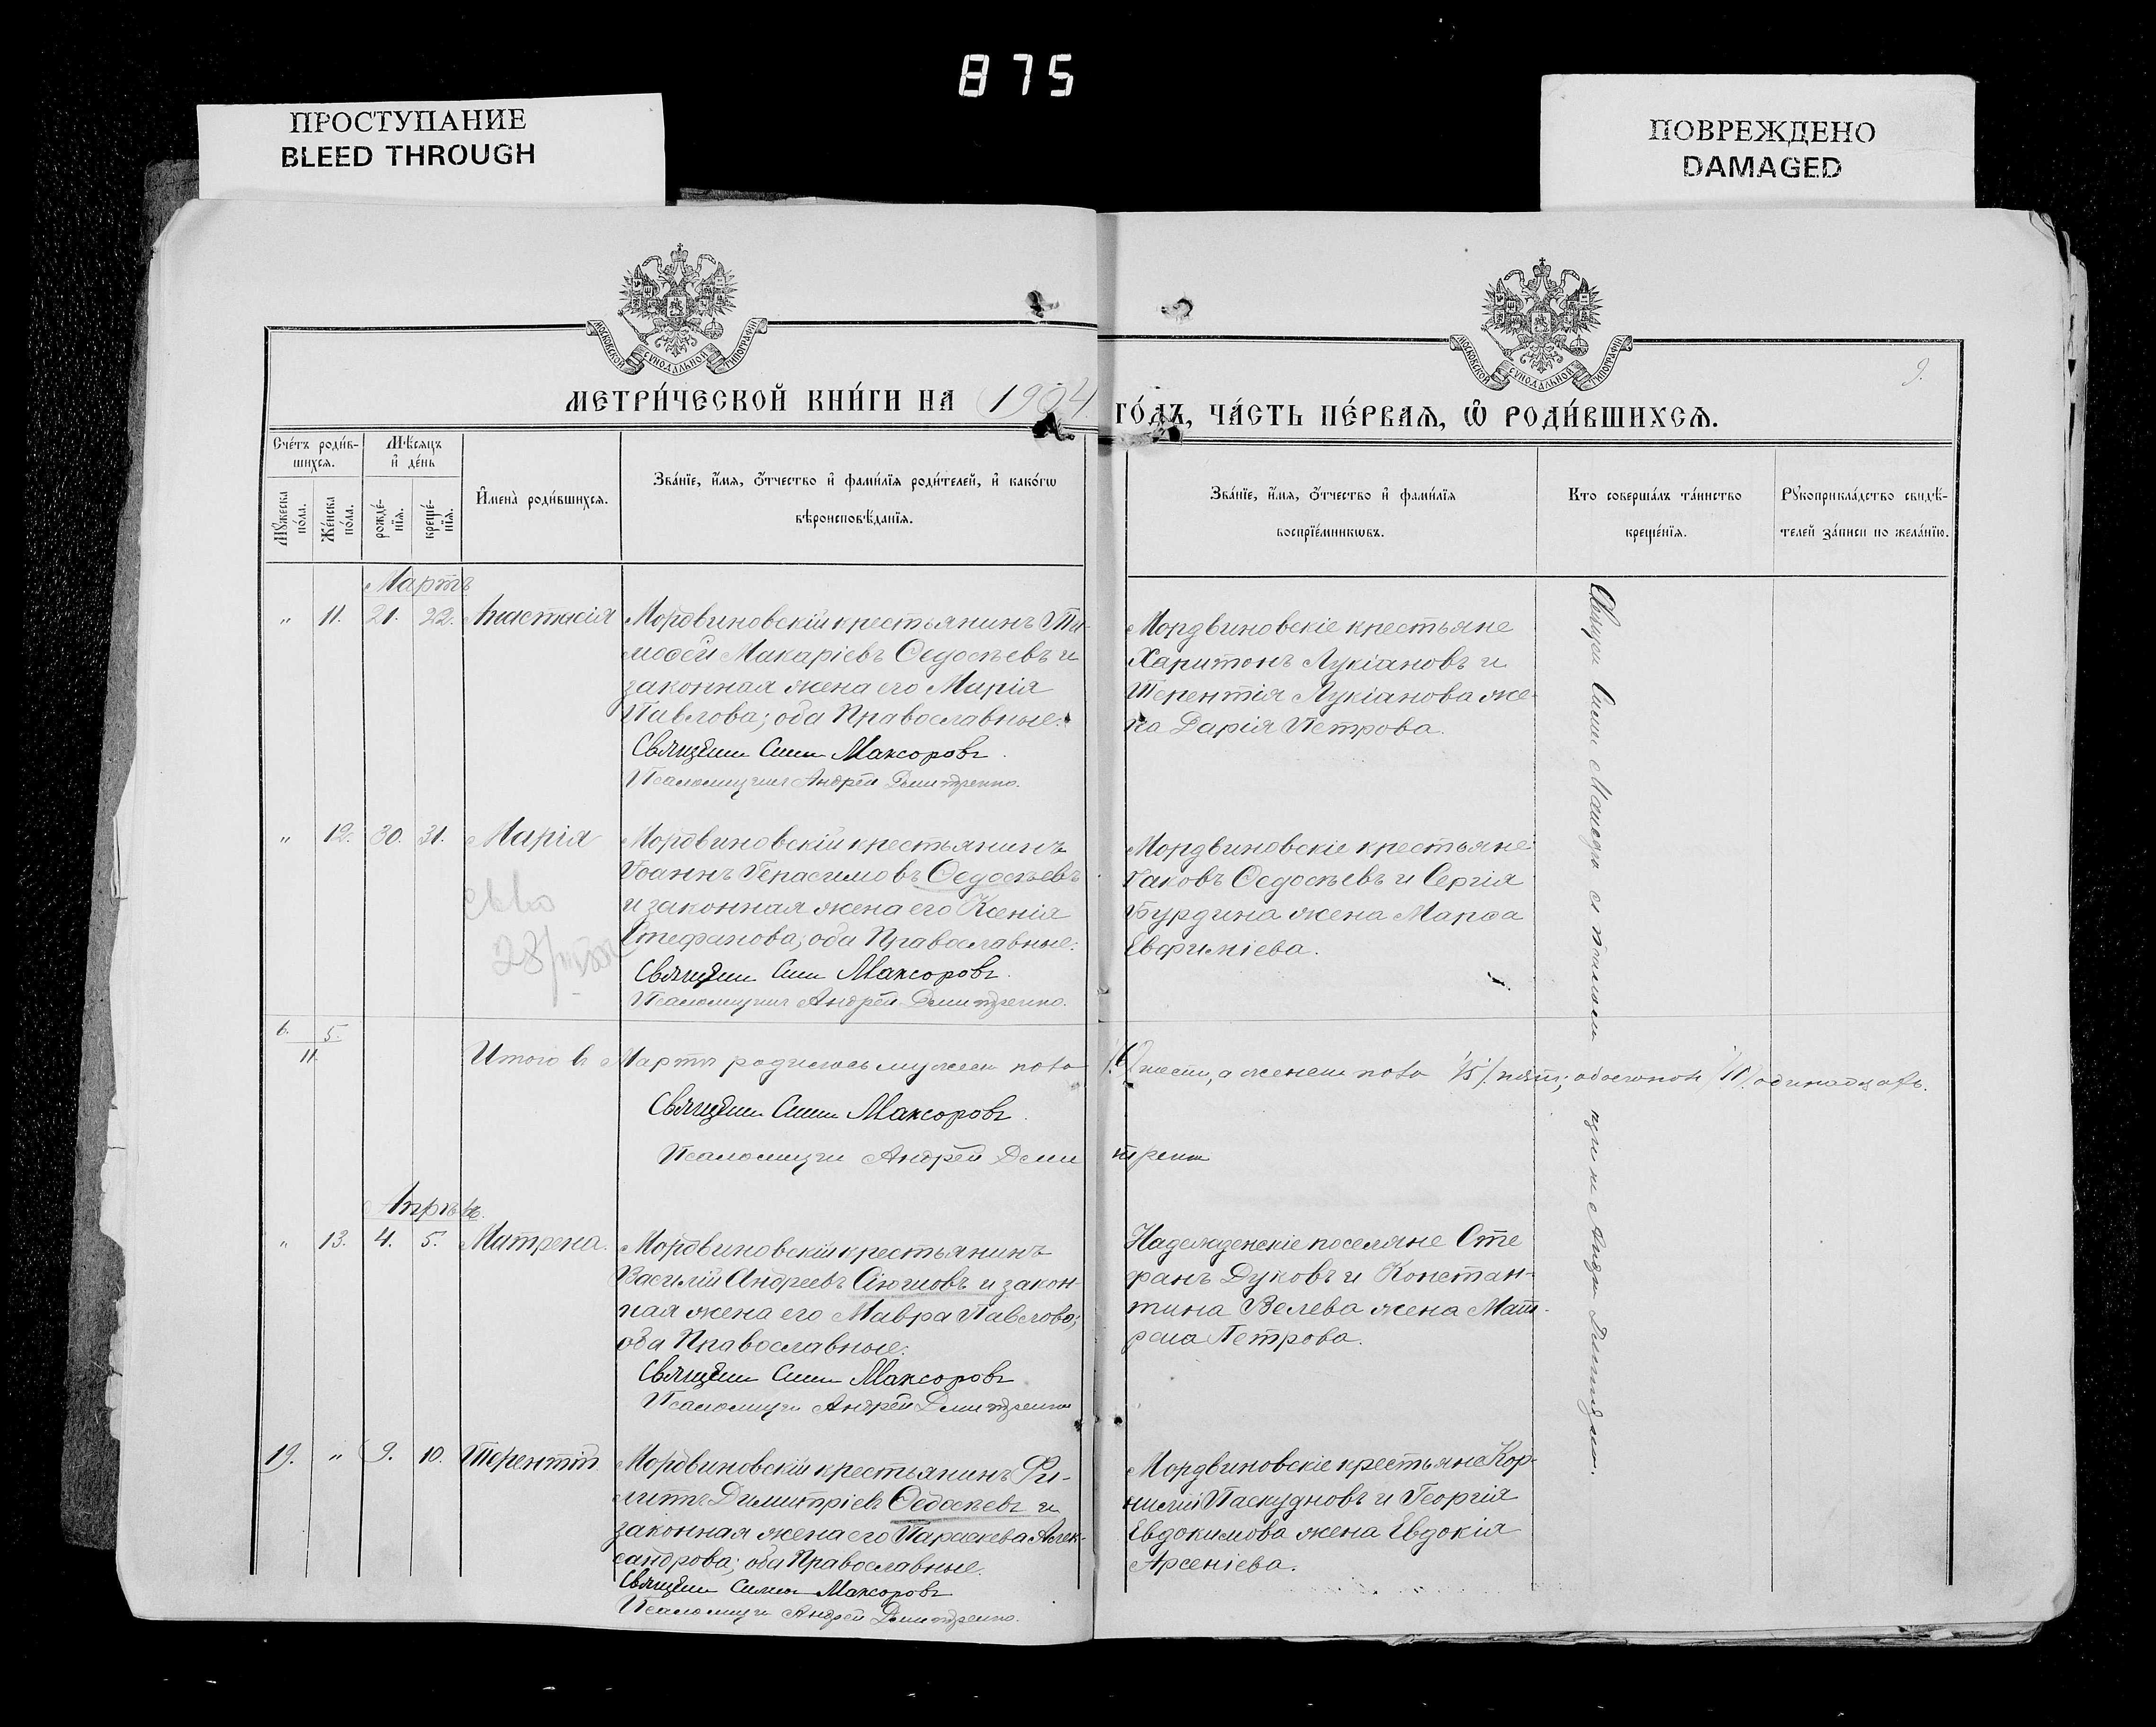 875
ПРОСТУПАНИЕ
BLEED THROUGH
ПОВРЕЖДЕНО
DAMAGED
МОСКОВСКОЙ СУНОДАЛЬНОЙ ТИПОГРАФІИ
МОСКОВСКОЙ СУНОДАЛЬНОЙ ТИПОГРАФІИ
9.
МЕТРИ́ЧЕСКОЙ КНИ́ГИ НА 1904 ГО́ДЪ, ЧА́СТЬ ПЕ́РВАЯ, Ѡ РОДИ́ВШИХСЯ.
Сче́тъ роди́вшихся.
Мꙋ́жеска по́ла.
Же́нска по́ла.
Мѣ́сяцъ и де́нь
рожде́нїя.
креще́нїя.
И҆мена̀ роди́вшихся.
Зва́нїе, и҆́мя, ѻ҆́тчество и҆ фами́лїя роди́телей, и҆ како́гѡ
вѣроисповѣ́данїя.
Зва́нїе, и҆́мя, ѻ҆́тчество и҆ фами́лїя
воспрїе́мникѡвъ.
Кто̀ соверша́лъ та́инство
креще́нїя.
Рꙋкоприкла́дство свидѣ́-
телей за́писи по жела́нїю.
Мартъ
" 11. 21. 22. Анастасія
Мордвиновскій крестьянинъ Ти-
моѳей Макаріевъ Ѳедосѣевъ и
законная жена его Марія
Павлова; оба Православные.
Священ Максоровъ.
Псаломщикъ Андрей Дмитренко.
Мордвиновскіе крестьяне
Харитонъ Лукіановъ и
Терентія Лукіанова же-
на Дарія Петрова.
" 12. 30. 31. Марія
Мордвиновскій крестьянинъ
Іоаннъ Герасимовъ Ѳедосѣевъ
и законная жена его Ксенія
Стефанова; оба Православные.
Священ Максоровъ.
Псаломщикъ Андрей Дмитренко.
Мордвиновскіе крестьяне
Іаковъ Ѳедосѣевъ и Сергія
Бурдина жена Марѳа
Евфиміева.
28/
6. 5.
11.
Итого въ Мартѣ родилось мужеск пола (6) шесть, а женск пола /5/ пять; обоего пола /11/ одинадцать.
Священ Максоровъ.
Псаломщикъ Андрей Дмитренко
Апрѣль.
" 13. 4. 5. Матрена.
Мордвиновскій крестьянинъ
Василій Андреевъ и закон-
ная жена его Мавра Павлова;
оба Православные.
Священ Максоровъ
Псаломщикъ Андрей Дмитренко
Надежденскіе поселяне Сте
фанъ Дуковъ и Констан-
тина Велева жена Мат-
рена Петрова.
19. " 9. 10. Терентій
Мордвиновскій крестьянинъ Фи-
липпъ Димитріевъ Ѳедосѣевъ и
законная жена его Параскева Алек-
сандрова; оба Православные.
Священ Максоровъ
Псаломщикъ Андрей Дмитренко.
Мордвиновскіе крестьяне Кор-
нилій Паскудновъ и Георгія
Евдокимова жена Евдокія
Арсеніева.